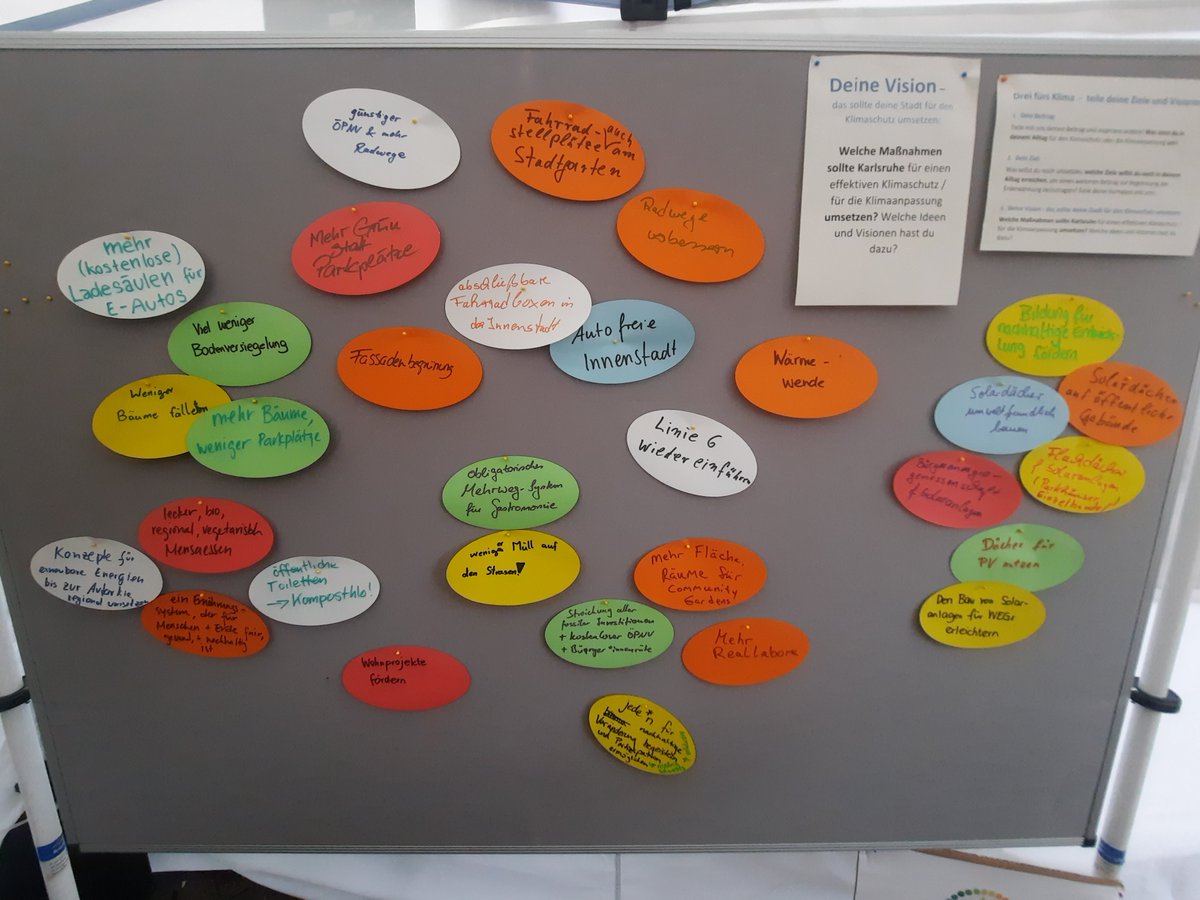 günstiger
ÖPNV & mehr
Radwege
Fahrrad- auch
stellplätze am
Stadtgarten
Deine Vision –
das sollte deine Stadt für den
Klimaschutz umsetzen:
Welche Maßnahmen
sollte Karlsruhe für einen
effektiven Klimaschutz /
für die Klimaanpassung
umsetzen? Welche Ideen
und Visionen hast du
dazu?
Drei fürs Klima - teile deine Ziele und
1. Dein Beitrag
2. Dein Ziel
Welche Maßnahmen sollte Karlsruhe für einen effektiven
umsetzen? Welche Ideen und Visionen hast du
dazu?
Mehr Grün
statt
Parkplätze
Radwege
verbessern
mehr
(kostenlose)
Ladesäulen für
E-Autos
abschließbare
Fahrradboxen in
der Innenstadt
Viel weniger
Bodenversiegelung
Fassadenbegrünung
Autofreie
Innenstadt
Wärme-
wende
Bildung für
nachhaltige Entwick-
lung fördern
Weniger
Bäume fällen
mehr Bäume,
weniger Parkplätze
Linie 6
wieder einführen
Solardächer
umweltfreundlich
bauen
Solardächer
auf öffentliche
Gebäude
Obligatorisches
Mehrweg-System
für Gastronomie
Flachdächer
f Solaranlagen
(Parkhäuser,
Einzelhandel)!
f Solaranlagen
lecker, bio,
regional, vegetarisch
Mensaessen
weniger Müll auf
den Strasen!
mehr Fläche,
Räume für
Community
Gardens
Dächer für
PV nutzen
Konzepte für
erneubare Energien
bis zur Autarkie
regional umsetzen
öffentliche
Toiletten
→ Kompostklo!
ein Ernährungs-
system, der für
Menschen + Erde fair,
gesund, + nachhaltig
ist
Streichung aller
fossiler Investitionen
+ kostenloser ÖPNV
+ Bürger*innenräte
Mehr
Reallabore
Den Bau von Solar-
anlagen für WEGs
erleichtern
Wohnprojekte
fördern
jede*n für
nachhaltige
Veränderung begeistern
und Partizipation
ermöglichen